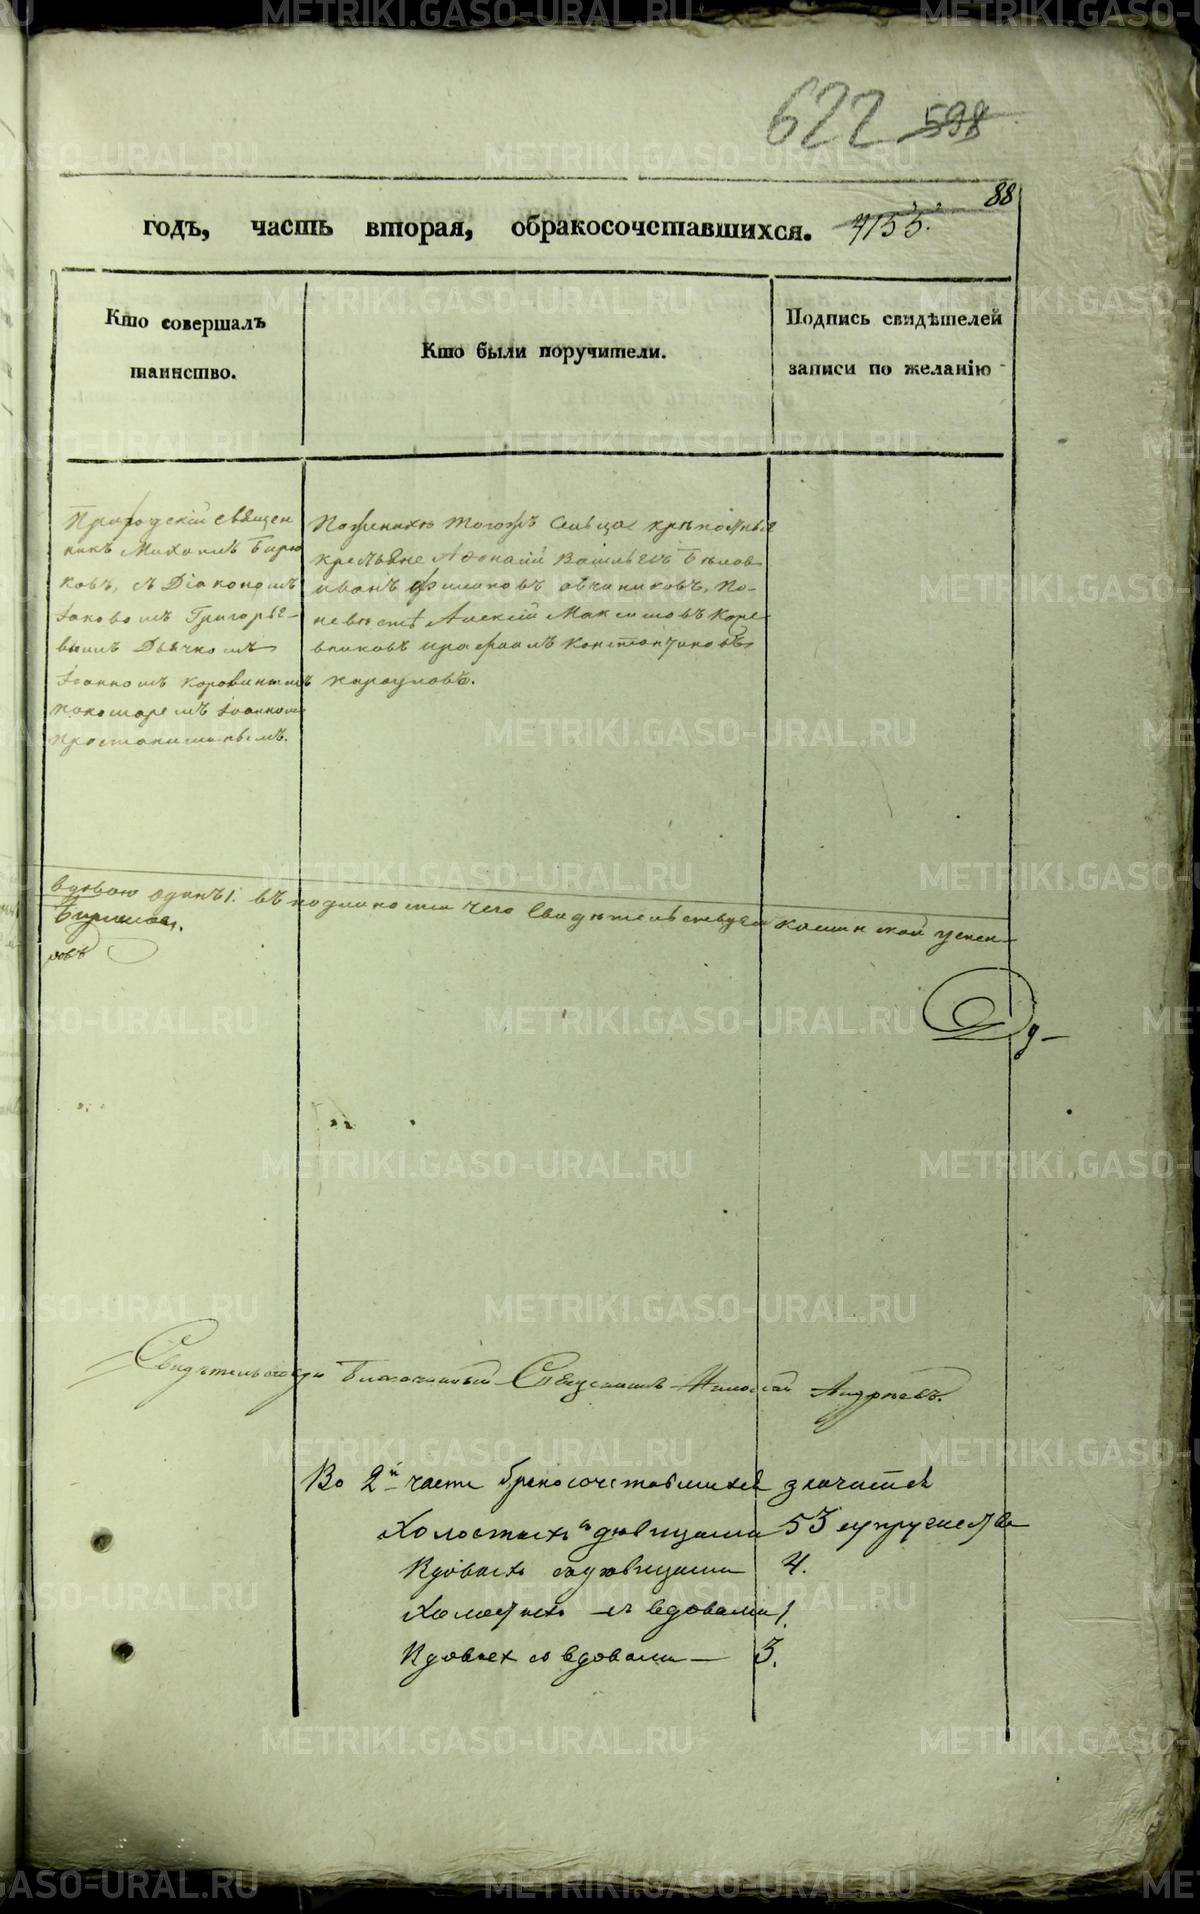 622 598
88
годъ, часть вторая, обракосочетавшихся. 4155.
Кто совершалъ
таинство.
Кто были поручители.
Подпись свидѣтелей
записи по желанію
Приходскій священ
никъ Михаилъ Бирю
ковъ, съ Діакономъ
Іаковомъ Григорье-
вымъ Дьячкомъ
Іоанномъ Коровинымъ
понамаремъ Іоанномъ
По женихѣ тогожъ Сельца крѣпостные
крестьяне Афонасій Васильевъ Бѣловъ
иванъ овчиниковъ, По-
невѣстѣ Алексѣй Максимовъ
Константиновъ
карауловъ.
вдовою одинъ 1. въ подлиности чего свидѣтельствуемъ
Свидѣтельствую Благочинный Священникъ Николай Андреевъ.
Во 2й части бракосочетавшихся значится
Холостыхъ съ дѣвицами 53 супружества
Вдовыхъ съ дѣвицами 4.
Холостыхъ съ вдовами 1.
Вдовыхъ со вдовами — 3.
METRIKI.GASO-URAL.RU